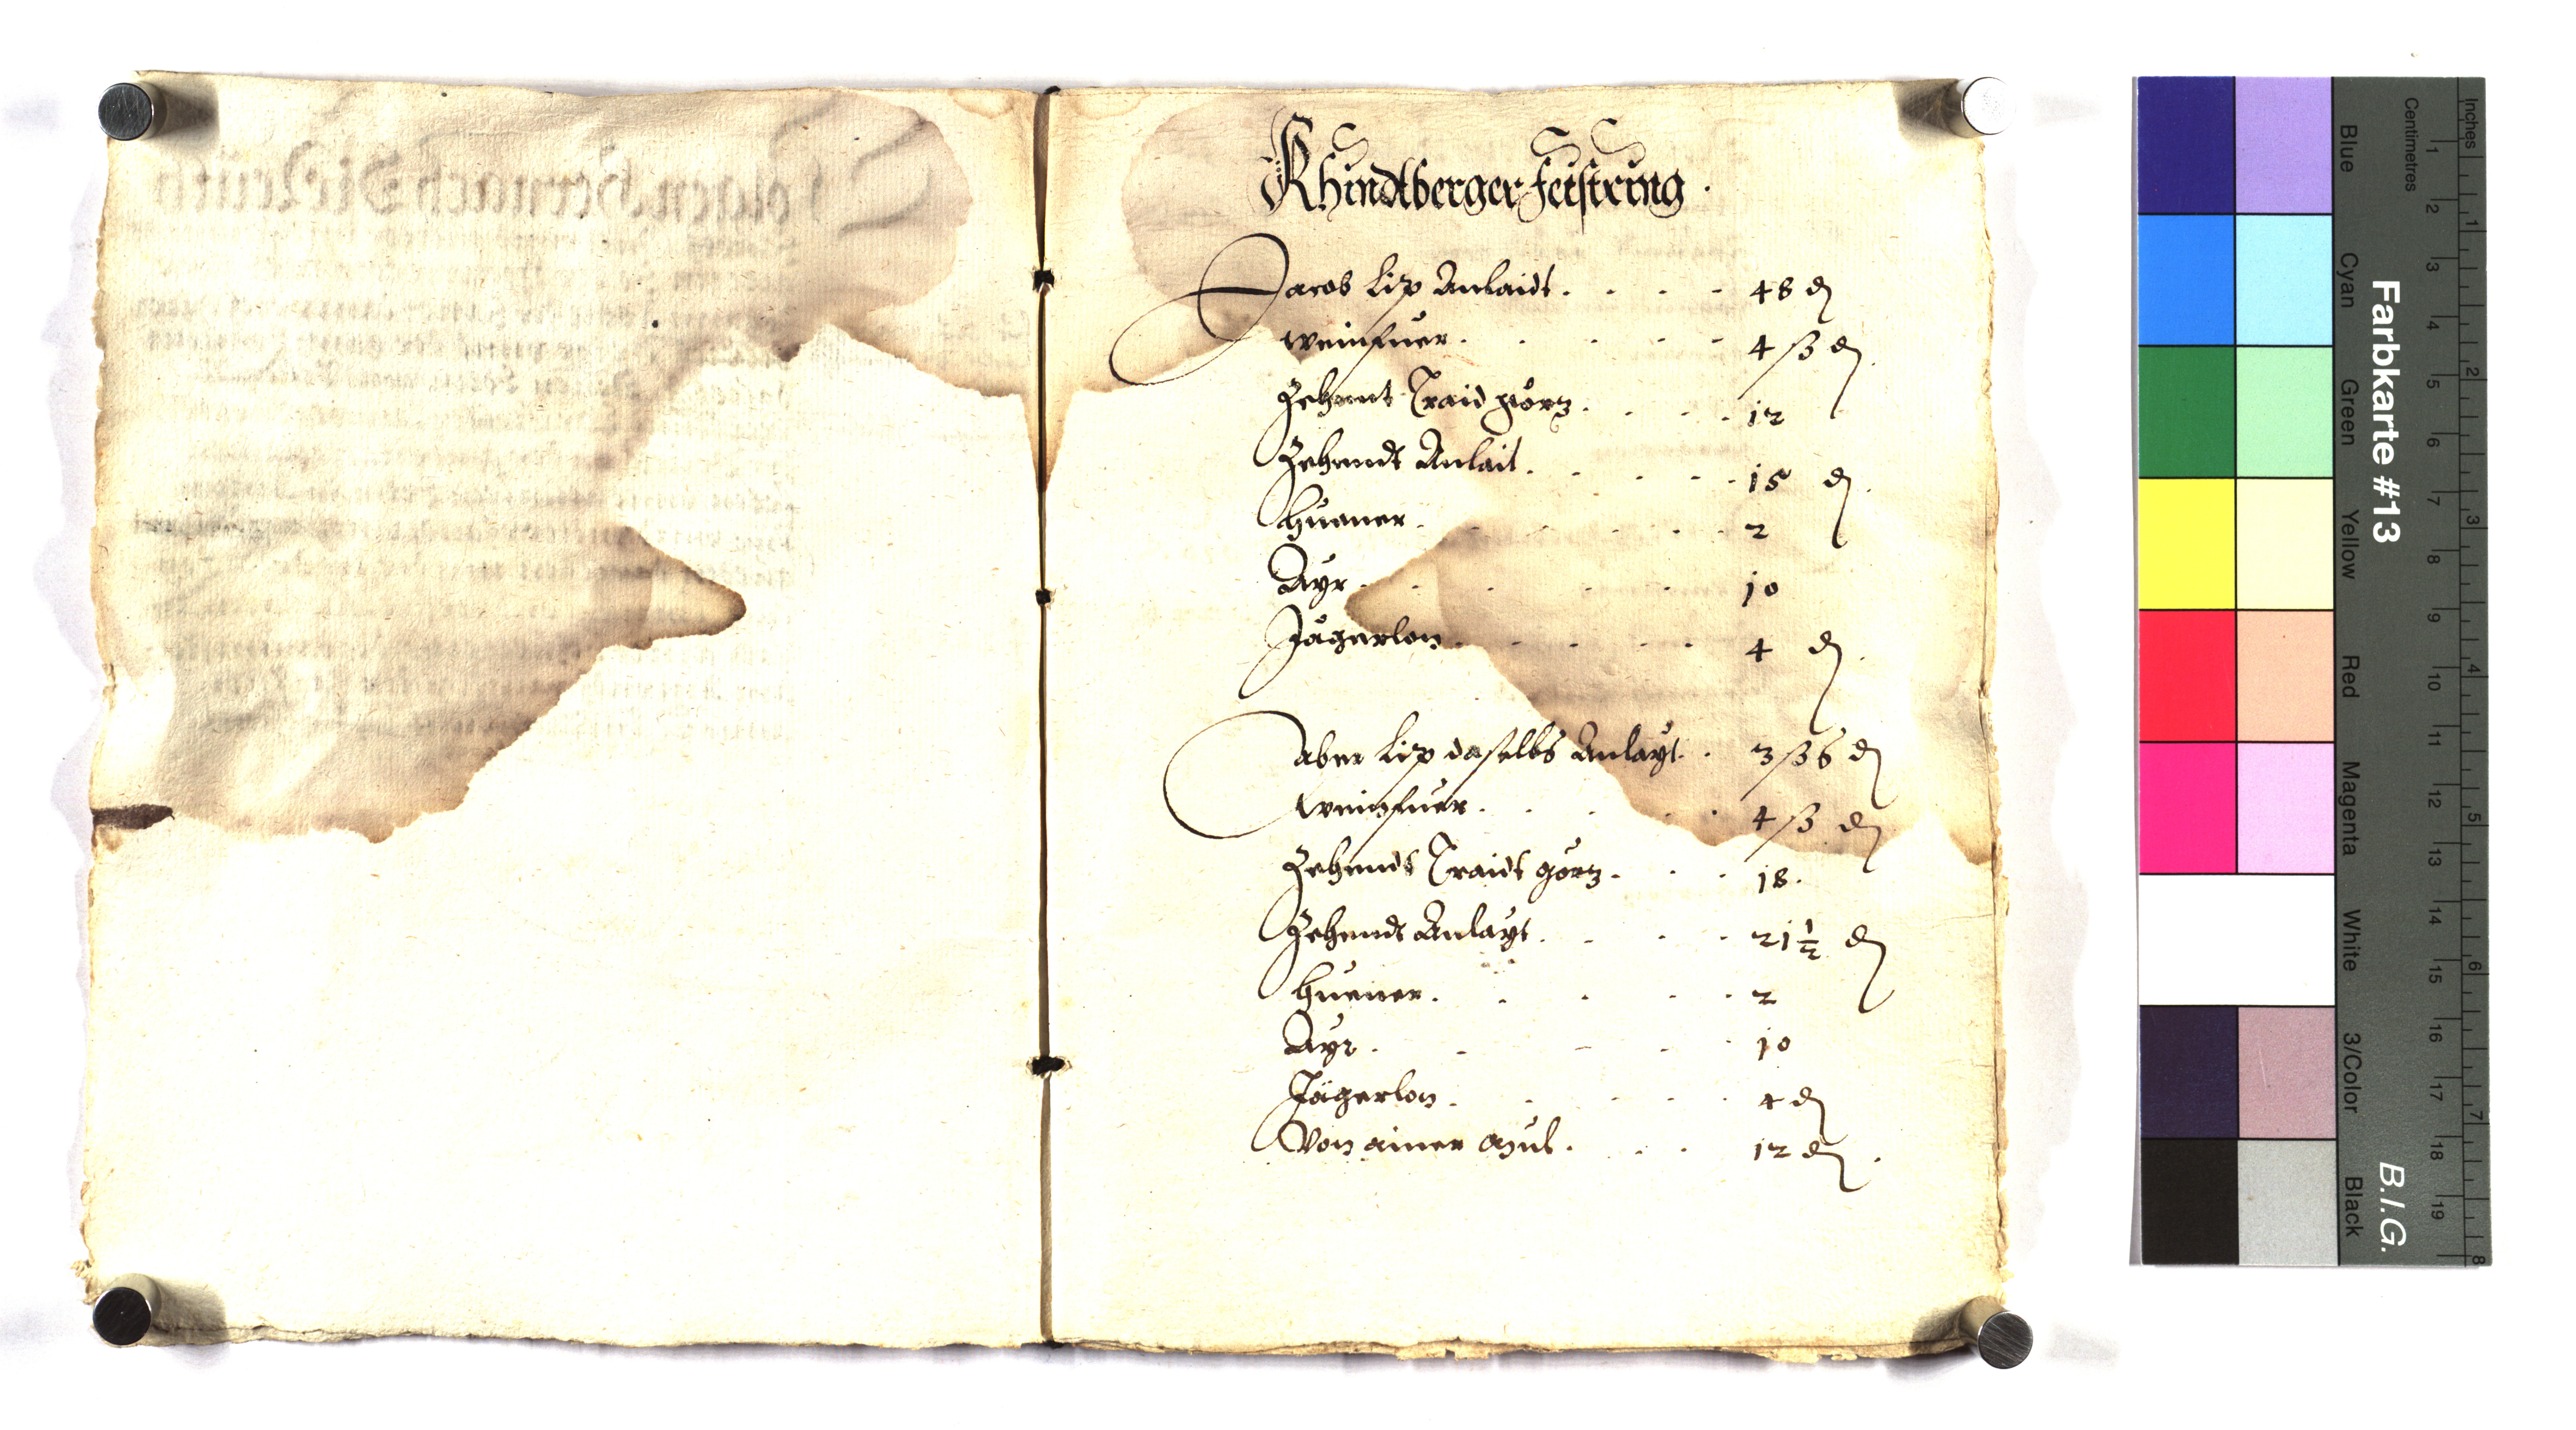 Khindtberger Feistring.
Jacob Lip Anlaidt . . . . 48 ₰
weinfuer . . . . . 4 ß ₰
Zehent Traid görz . . . 12
Zehendt Anlait . . . . 15 ₰.
Huener . . . . 2
Ayr . . . . 10
Jägerlon . . . . 4 ₰.
aber Lip daselbs Anlayt . 3 ß 6 ₰
weinfuer . . . . 4 ß ₰
Zehendt Traidt görz . . . 18.
Zehendt Anlayt . . . . 21 1/2 ₰
Huener . . . . . 2
Ayr . . . . . 10
Jägerlon . . . . . 4 ₰
Von ainer Mül . . . 12 ₰.
Farbkarte #13
B.I.G.
Blue
Cyan
Green
Yellow
Red
Magenta
White
3/Color
Black
Centimetres
1 2 3 4 5 6 7 8 9 10 11 12 13 14 15 16 17 18 19
Inches
1 2 3 4 5 6 7 8